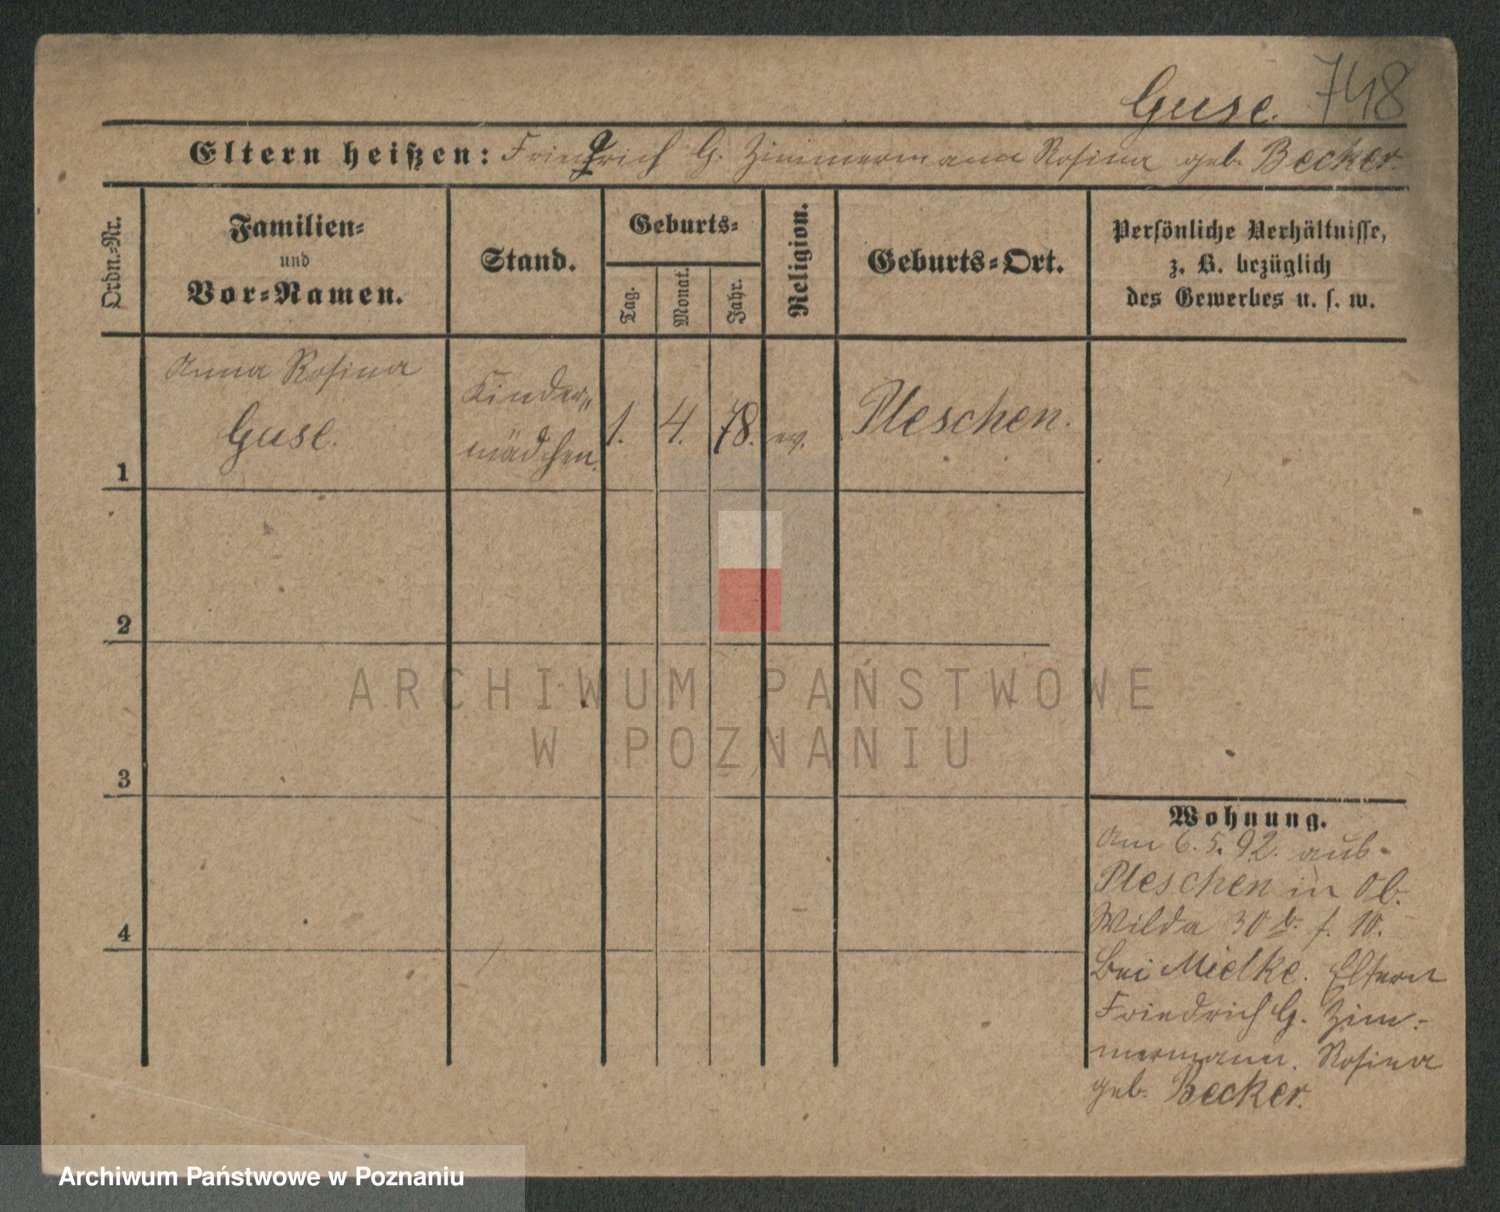 Guse. 748
Eltern heißen: Friedrich G. Zimmermann Rosina geb. Becker.
Ordn.-Nr.
Familien-
und
Vor-Namen.
Stand.
Geburts-
Tag.
Monat.
Jahr.
Religion.
Geburts-Ort.
Persönliche Verhältnisse,
z. B. bezüglich
des Gewerbes u. s. w.
1
Anna Rosina
Guse.
Kinder-
mädchen.
1. 4. 78. ev. Pleschen.
2
3
4
Wohnung.
Am 6.5.92. aus
Pleschen in Ob.
Wilda 30 b. f. 10.
Bei Mielke. Eltern
Friedrich G. Zim-
mermann. Rosina
geb. Becker.
ARCHIWUM PAŃSTWOWE
W POZNANIU
Archiwum Państwowe w Poznaniu